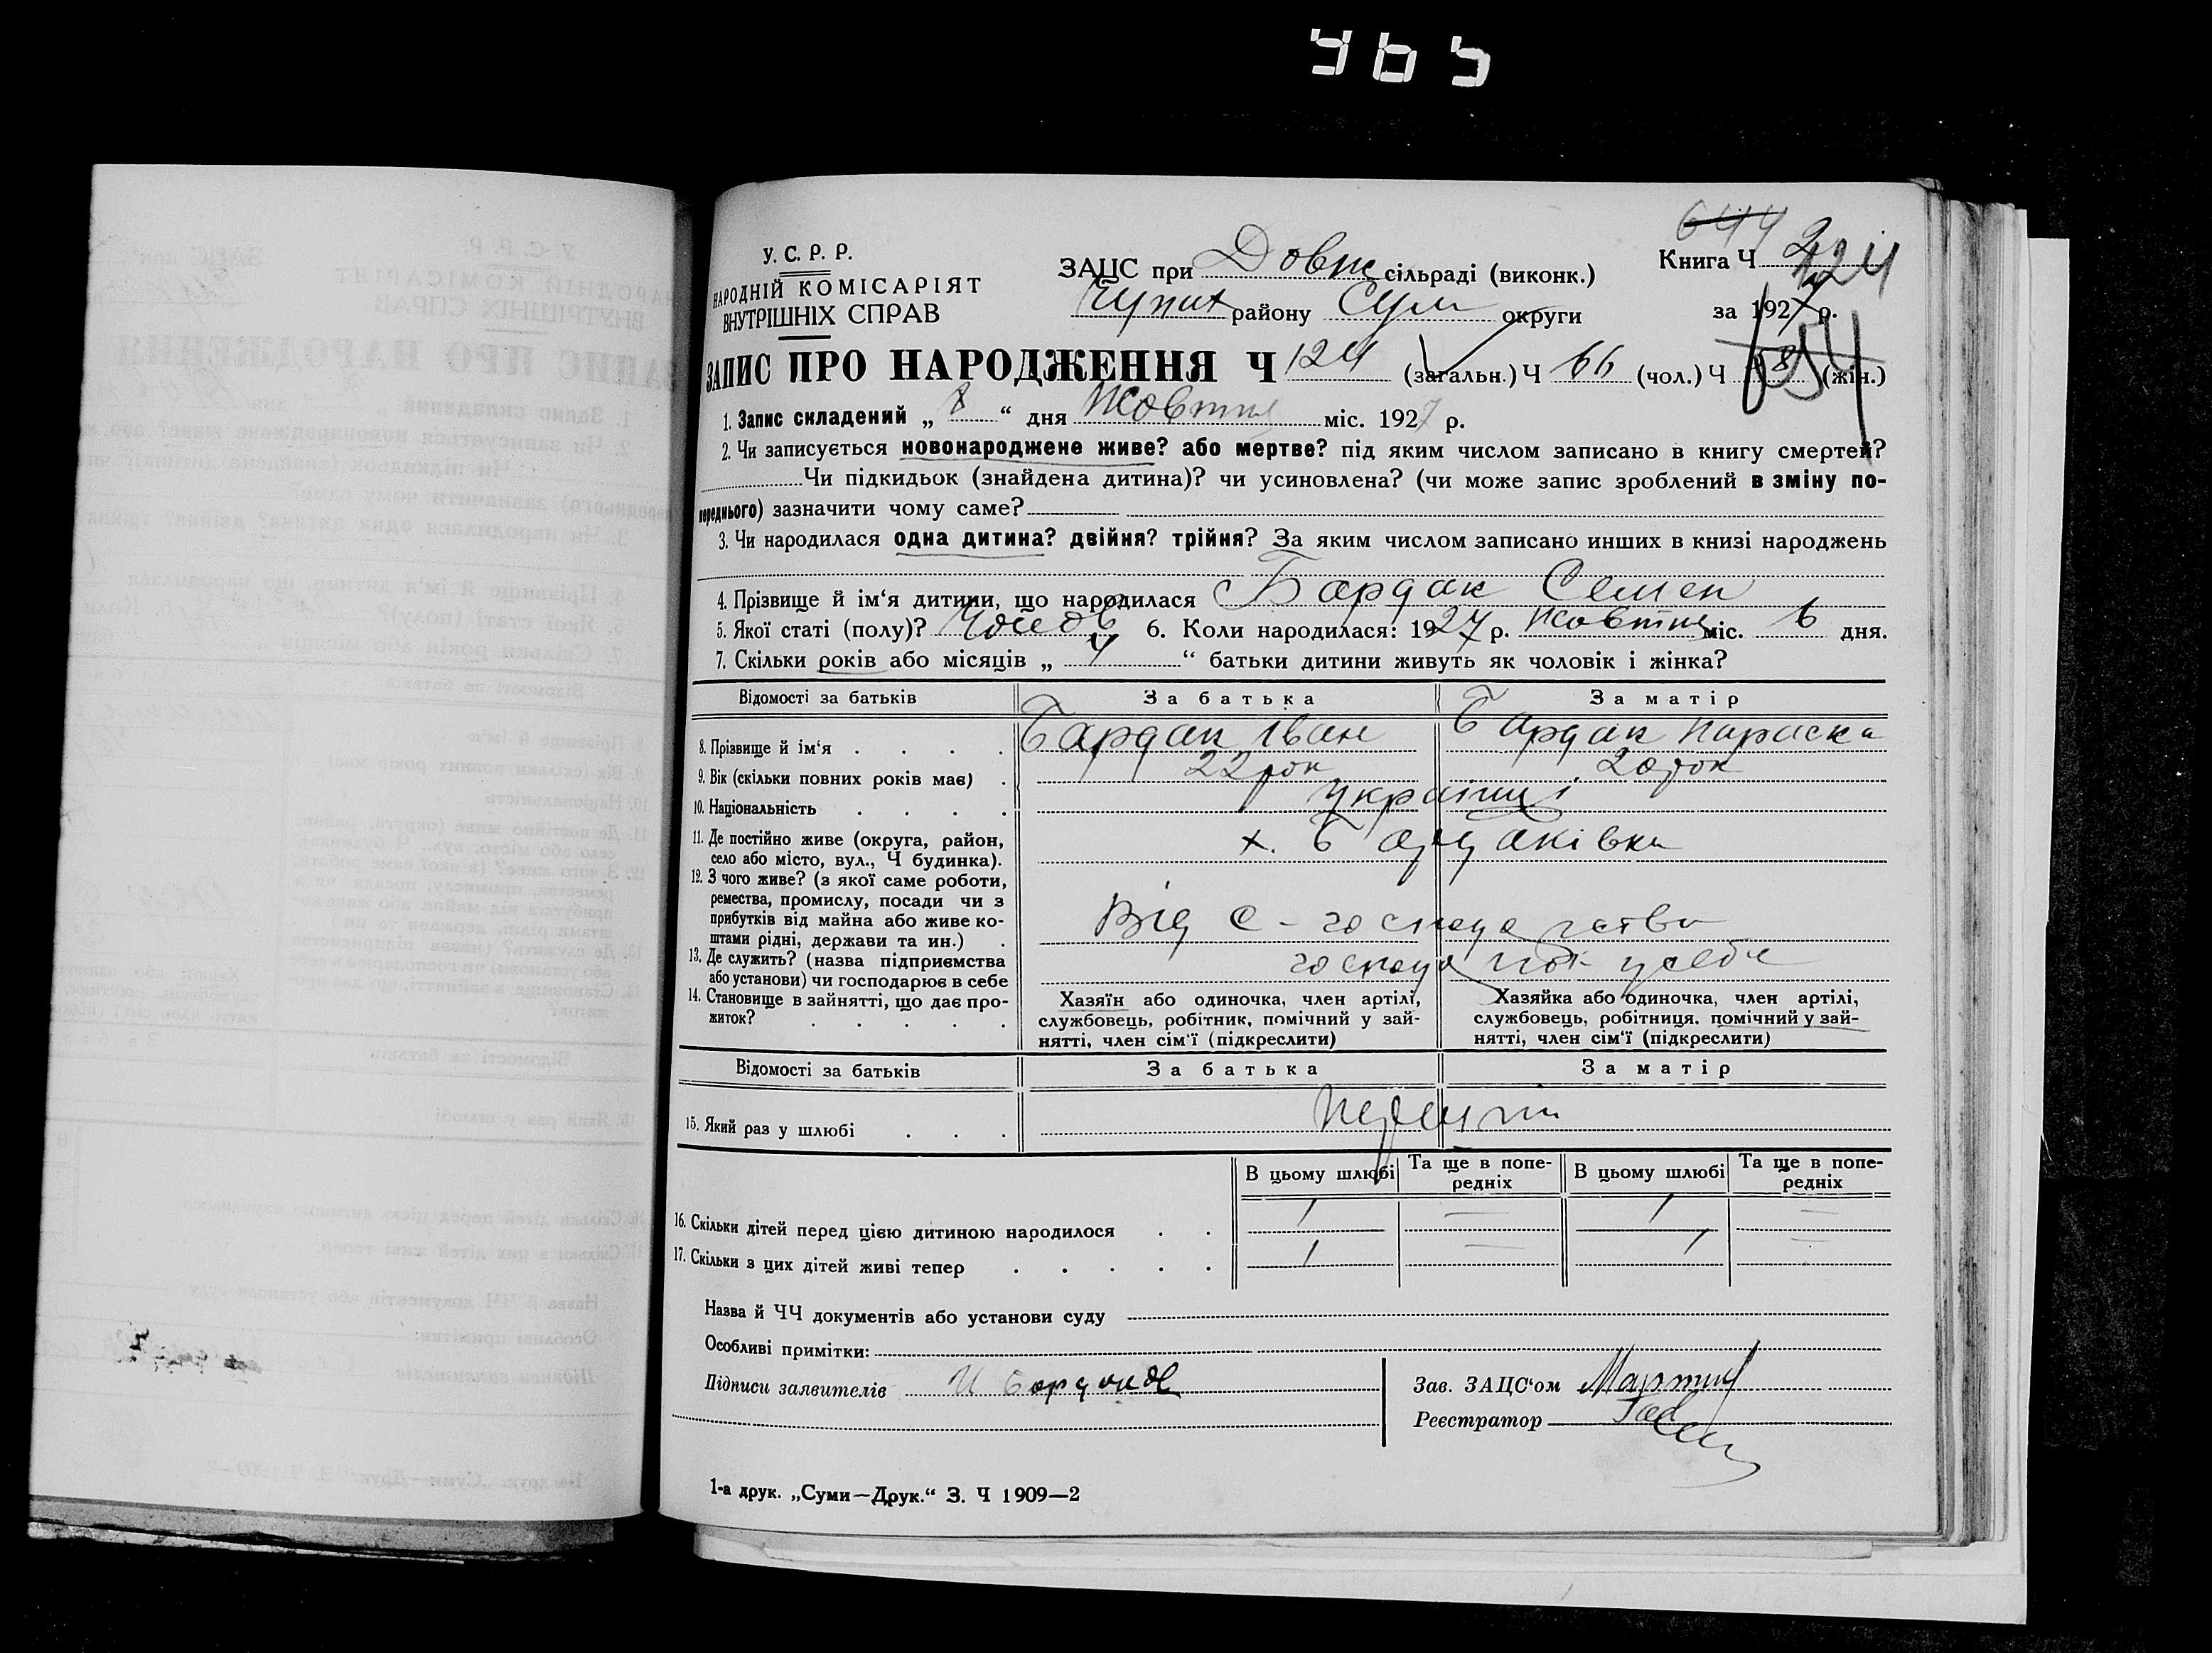 У. С. Р. Р.
НАРОДНІЙ КОМІСАРІЯТ
ВНУТРІШНІХ СПРАВ
ЗАЦС при Довж сільраді (виконк.)
района Сум округи
644
Книга Ч 2 224
за 1927 р.
654
ЗАПИС ПРО НАРОДЖЕННЯ Ч 124 (загальн.) Ч 66 (чол.) Ч (жін.)
1. Запис складений „ 8 “ дня Жовтня міс. 1927 р.
2. Чи записується новонароджене живе? або мертве? під яким числом записано в книгу смертей?
Чи підкидьок (знайдена дитина)? чи усиновлена? (чи може запис зроблений в зміну по-
переднього) зазначити чому саме?
3. Чи народилася одна дитина? двійня? трійня? За яким числом записано инших в книзі народжень
4. Прізвище й ім‘я дитини, що народилася Бардак Семен
5. Якої статі (полу)? Чолов 6. Коли народилася: 1927 р. Жовтня міс. 6 дня.
7. Скільки років або місяців „ 4 “ батьки дитини живуть як чоловік і жінка?
Відомості за батьків За батька За матір
8. Прізвище й ім‘я . . . . Бардак Іван Бардак Параска
9. Вік (скільки повних років має) . 22 рок 20 рок
10. Національність . . . . українці
11. Де постійно живе (округа, район,
село або місто, вул., Ч будинка). х. Бардаківка
12. З чого живе? (з якої саме роботи,
ремества, промислу, посади чи з
прибутків від майна або живе ко-
штами рідні, держави та ин.) . Від с-господарства
13. Де служить? (назва підприємства
або установи) чи господарює в себе господ у себе
14. Становище в зайнятті, що дає про-
житок? . . . . .
Хазяїн або одиночка, член артілі,
службовець, робітник, помічний у зай-
нятті, член сім‘ї (підкреслити)
Хазяйка або одиночка, член артілі,
службовець, робітниця, помічний у зай-
нятті, член сім‘ї (підкреслити)
Відомості за батьків За батька За матір
15. Який раз у шлюбі . . .
В цьому шлюбі Та ще в попе-
редніх В цьому шлюбі Та ще в попе-
редніх
16. Скільки дітей перед цією дитиною народилося . . 1 — 1 —
17. Скільки з цих дітей живі тепер . . . . . 1 — 1 —
Назва й ЧЧ документів або установи суду
Особливі примітки:
Підписи заявителів И Бардак
Зав. ЗАЦС‘ом
Реєстратор
1-а друк. „Суми—Друк.“ З. Ч 1909—2